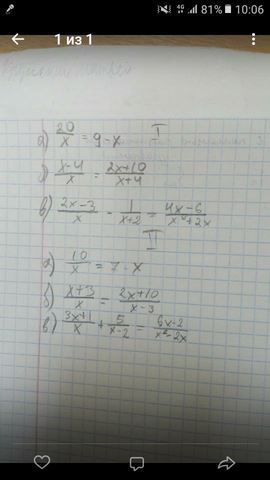 4G 81% 10:06
1 из 1
I
а) 20/x = 9 - x
б) x-4/x = 2x+10/x+4
в) 2x-3/x - 1/x+2 = 4x-6/x²+2x
II
а) 10/x = 7 - x
б) x+3/x = 2x+10/x-3
в) 3x+1/x + 5/x-2 = 6x-2/x²-2x